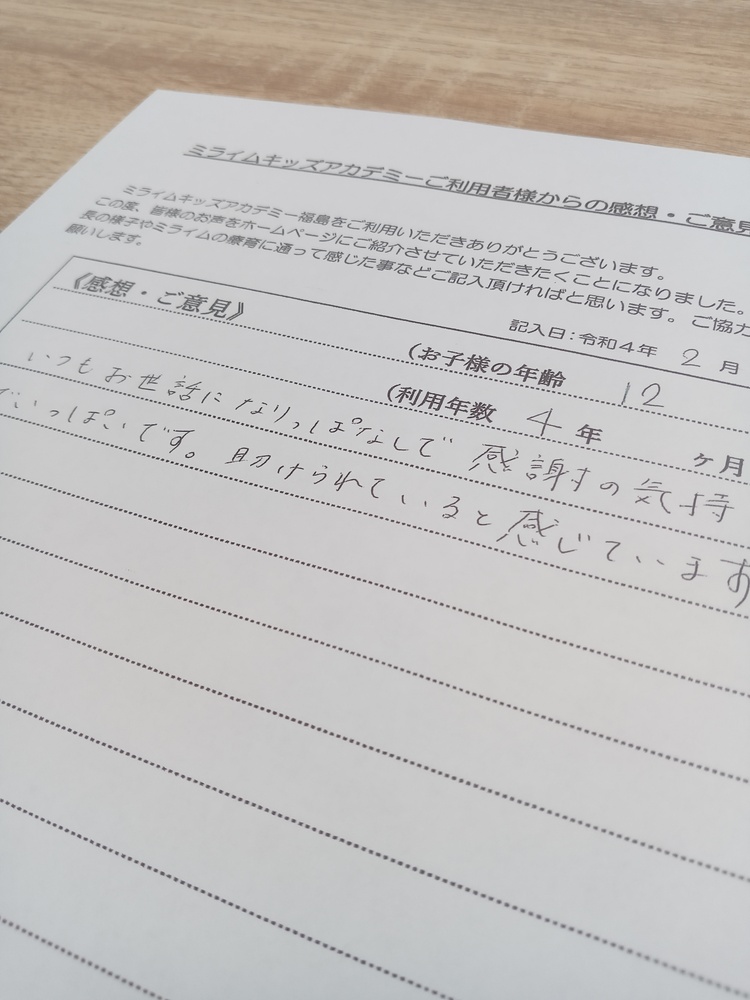 ミライムキッズアカデミーご利用者様からの感想・ご意見
ミライムキッズアカデミー福島をご利用いただきありがとうございます。
この度、皆様のお声をホームページにご紹介させていただきたくことになりました。
長の様子やミライムの療育に通って感じた事などご記入頂ければと思います。ご協力
願いします。
記入日：令和４年 2 月
《感想・ご意見》
(お子様の年齢 12
(利用年数 4 年 ヶ月
いつもお世話になりっぱなしで感謝の気持
でいっぱいです。助けられていると感じています